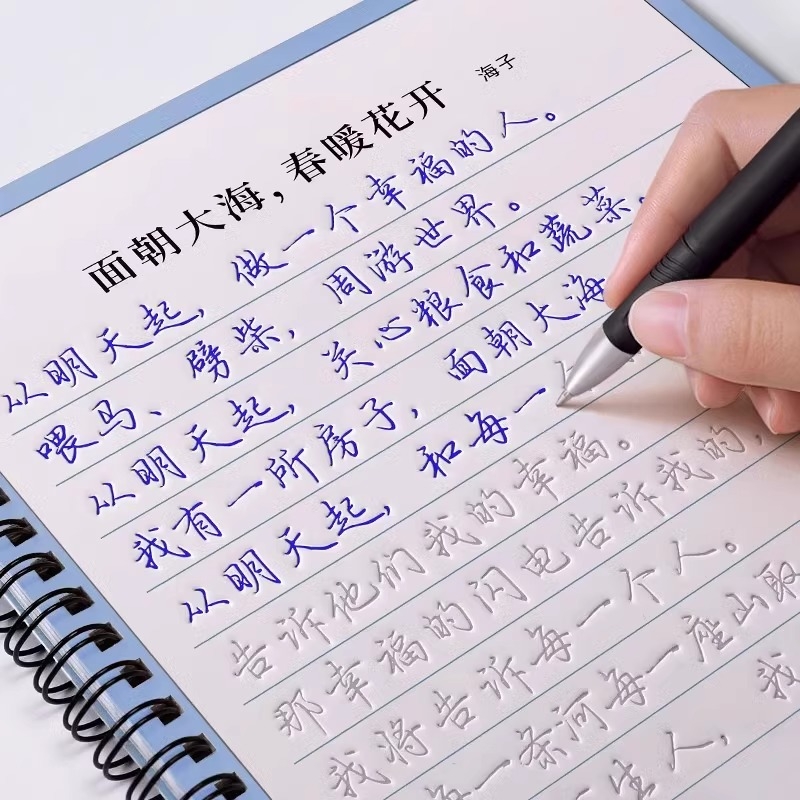 面朝大海,春暖花开 海子
从明天起,做一个幸福的人。
喂马、劈柴,周游世界。
从明天起,关心粮食和蔬菜,
我有一所房子,面朝大海
从明天起,和每一
告诉他们我的幸福。
那幸福的闪电告诉我的,
我将告诉每一个人。
每一条河每一座山取
生人,我